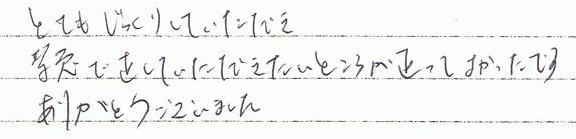 とてもじっくりしていただき
写真で直していただきたいところが直ってよかったです
ありがとうございました